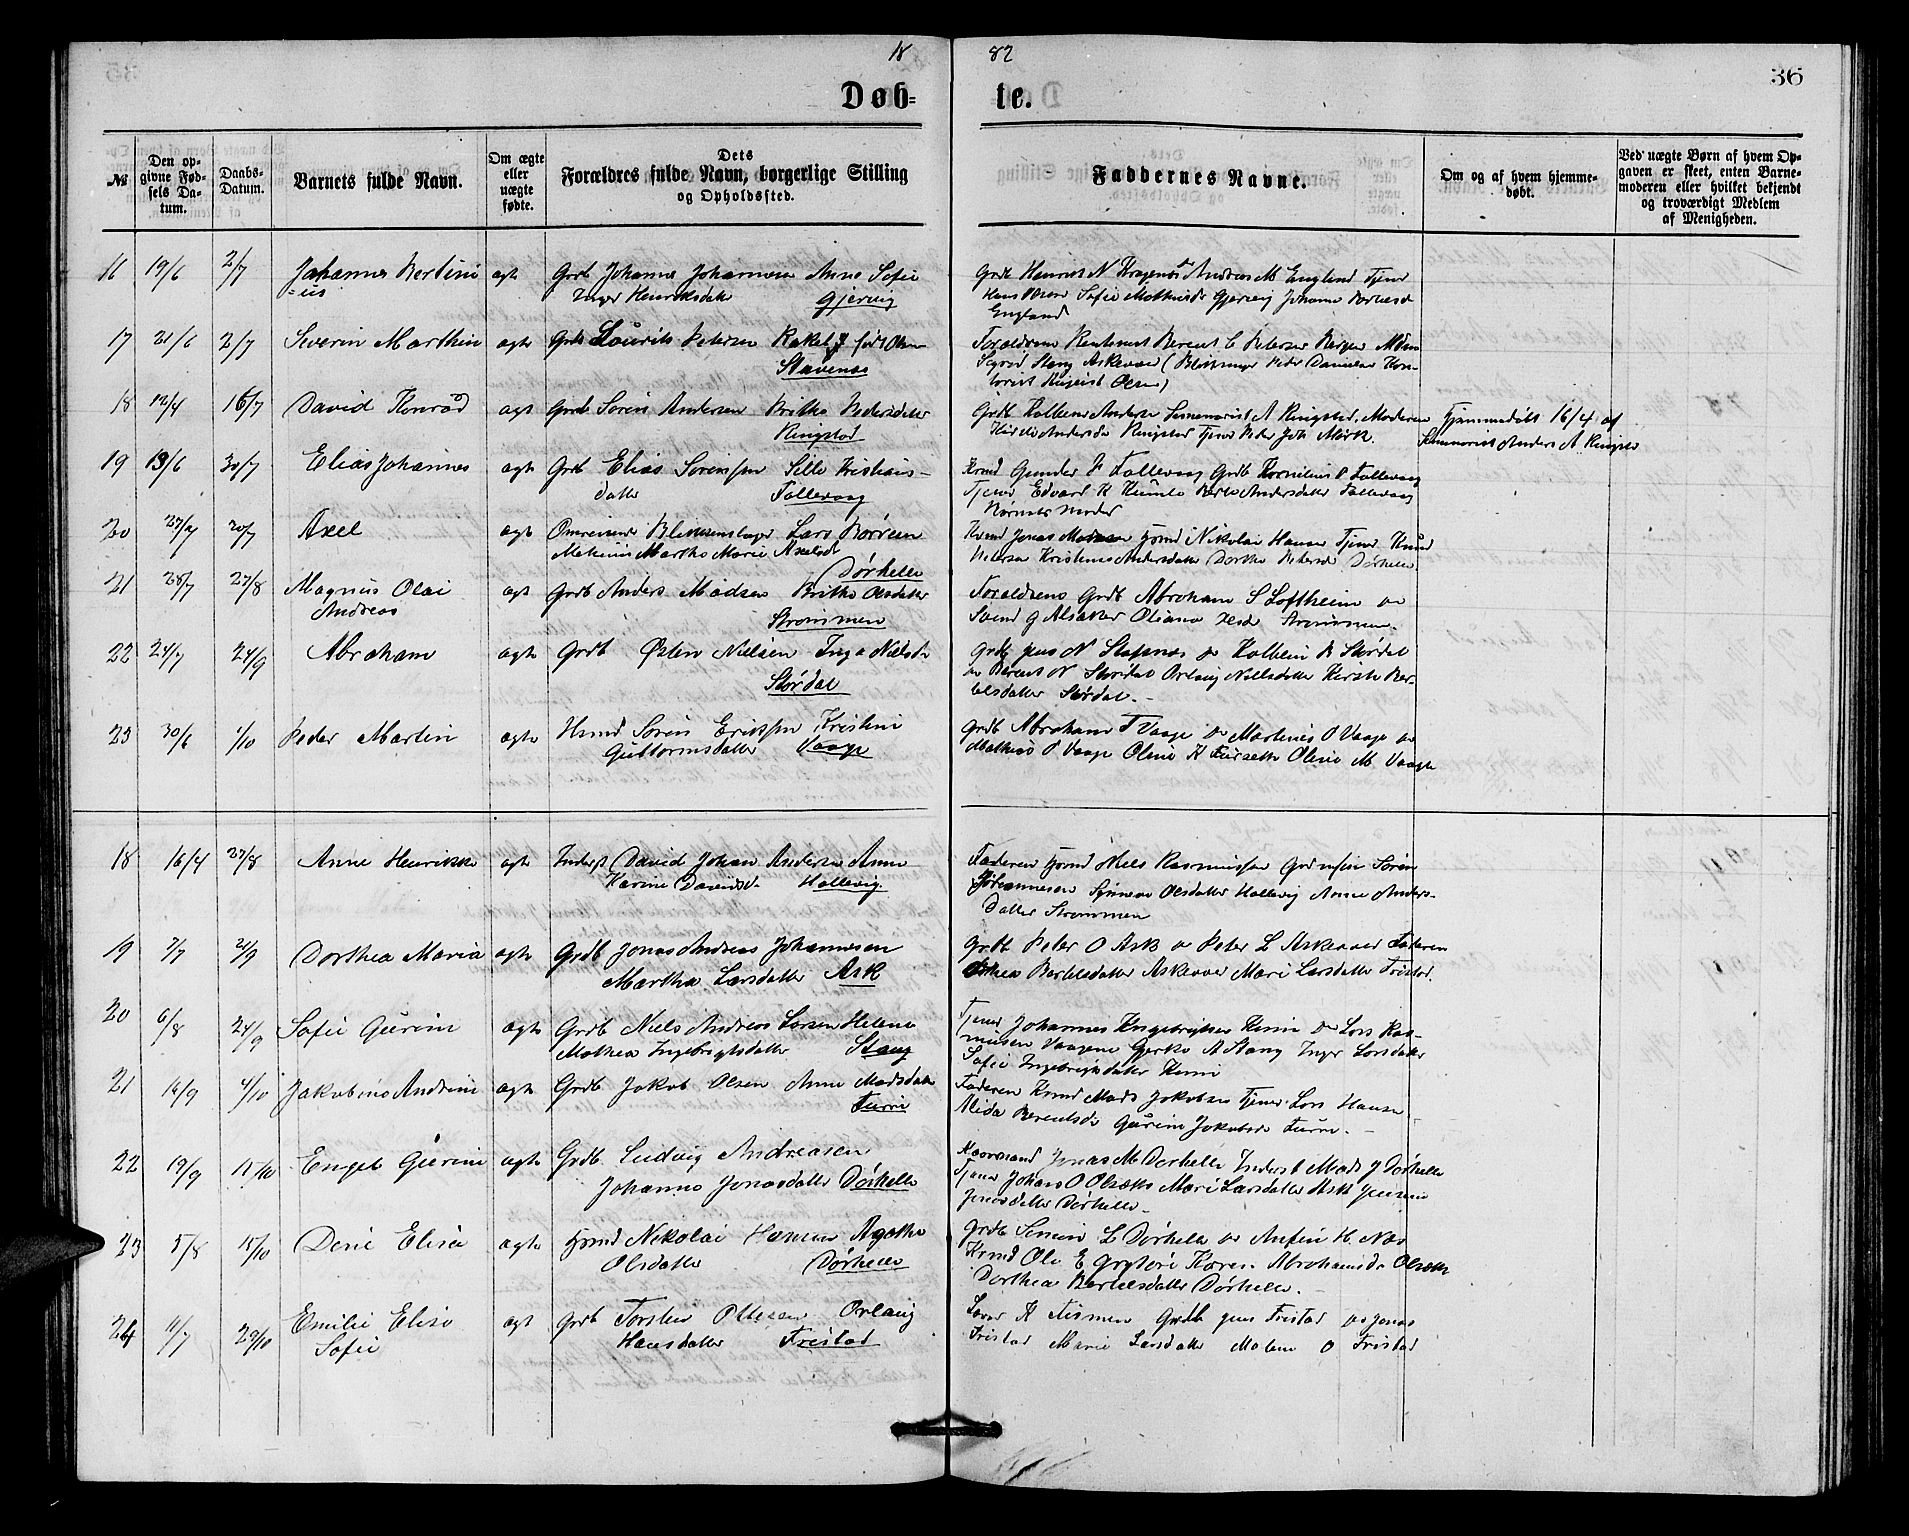 18 82
36
Døb= te.
№
Den op=
givne Fød=
sels Da=
tum.
Daabs=
Datum.
Barnets fulde Navn.
Om ægte
eller
uægte
fødte.
Dets
Forældres fulde Navn, borgerlige Stilling
og Opholdssted.
Faddernes Navne.
Om og af hvem hjemme=
døbt.
Ved uægte Børn af hvem Op=
gaven er skeet, enten Barne=
moderen eller hvilket bekjendt
og troværdigt Medlem
af Menigheden.
16 19/6 2/7 Johannes Bertini
=us
agte Grdb Johannes Johannesen Anne Sofie
Inger Henriksdatter Gjervig
Grdb Henrik N Andreas M England Tjener
Sofie Gjervig Johanne
England
17 21/6 2/7 Severin Marthin agte Grdb Laurits Petersen Rakel J født Olsen
Stavenes
Forældrene Berent C Petersen Bergen
Sigrid Stang Askevold Peder Danielsen Kon-
torist August Olsen)
18 12/4 16/7 David Konrad agte Grdb Søren Andersen Brithe Pedersdatter
Ringstad
Grdb Kolbein Andersen Semenarist A Ringstad, Moderen
Andersdr Ringstad Tjener Peder Joh Mørk.
Hjemmedøbt 16/4 af
Semenarist Anders A Ringstad
19 13/6 30/7 Elias Johannes agte Grdb Elias Sørenssen Sille Kristians-
datter Follevaag
Gunder P Follevaag Grdb Kornelius P Follevaag
Tjener Edvard K Humle Berte Andersdatter Follevaag
Barnets Moder
20 27/7 30/7 Axel agte Omreisende Blikkenslager Lars Børresen
Martha Marie Axelsdr
Dørhelle
Jonas Madsen Hmd Nikolai Hansen Tjener Knud
Petersen Kristense Andersdatter Dorthe Petersdr Dørhelle
21 28/7 27/8 Magnus Olai
Andreas
agte Grdb Anders Madsen Brithe Olsdatter
Strømmen
Forældrene Grdb Abraham S Loftheim og
Svend G Alsaker Oliane Strømmen.
22 24/7 24/9 Abraham agte Grdb Østen Nielsen Inga Nielsdr
Stordal
Grdb Jens N Stafsnæs og Kolbein R Stordal
og Berent N Stordal Orlaug Nielsdatter Kirste Ber-
telsdatter Stordal.-
23 30/6 1/10 Peder Martin agte Hmd Søren Erikssen Kristine
Guttormsdatter Vaage
Grdb Abraham T Vaage og Martines O Vaage og
Mathias P Vaage Oline K Fursette Oline M Vaage
18 16/4 27/8 Anne Henrikke agte Inderst David Johan Andersen Anne
Karine Davidsd. Hallevig
Faderen Hmd Niels Rasmussen Søren
Johannesen Synneve Olsdatter Hallevig Anne Anders-
datter Strømmen
19 7/7 21/9 Dorthea Maria agte Grdb Jonas Andreas Johannesen
Martha Larsdatter Ask
Grdb Peter O Ask og Peter L Askevold Faderen
Bertelsdatter Askevold Mari Larsdatter Fristad.
20 6/8 24/9 Sofie Gurine agte Grdb Niels Andreas Larsen Helene
Mathea Ingebrigtsdatter Stang
Tjener Johannes Ingebrigtsen og Lars Ras-
mussen Vaagene Gerke A Stang Inger Larsdatter
Sofie Ingebrigtsdatter
21 16/9 4/10 Jakobine Andrine agte Grdb Jakob Olsen Anne Madsdatter
Furre
Faderen Mads Jakobsen Tjener Lars Hansen
Alida Berentsdr Gurine Jakobsdr Furre.-
22 19/9 15/10 Engel Gurine agte Grdb. Ludvig Andreasen
Johanne Jonasdatter Dørhelle
Jonas M Dørhelle Inderst Mads J Dørhelle
Tjener Johan O Olsæth Mari Larsdatter Ask
Jonasdatter Dørhelle.
23 5/8 15/10 Dine Elise agte Hmd Nikolai Hansen Agathe
Olsdatter Dørhelle
Grdb L Dørhelle og Anfin H. Næs
Ole E Grytøri Karen Abrahamsdr Olsæth
Dorthea Bertelsdatter Dørhelle.-
24 11/7 29/10 Emilie Elise
Sofie
agte Grdb Torsten Ottesen Orlaug
Hansdatter Fristad
Lærer K Grdb Jens Fristad og Jonas
Fristad Marie Larsdatter Malene O Fristad